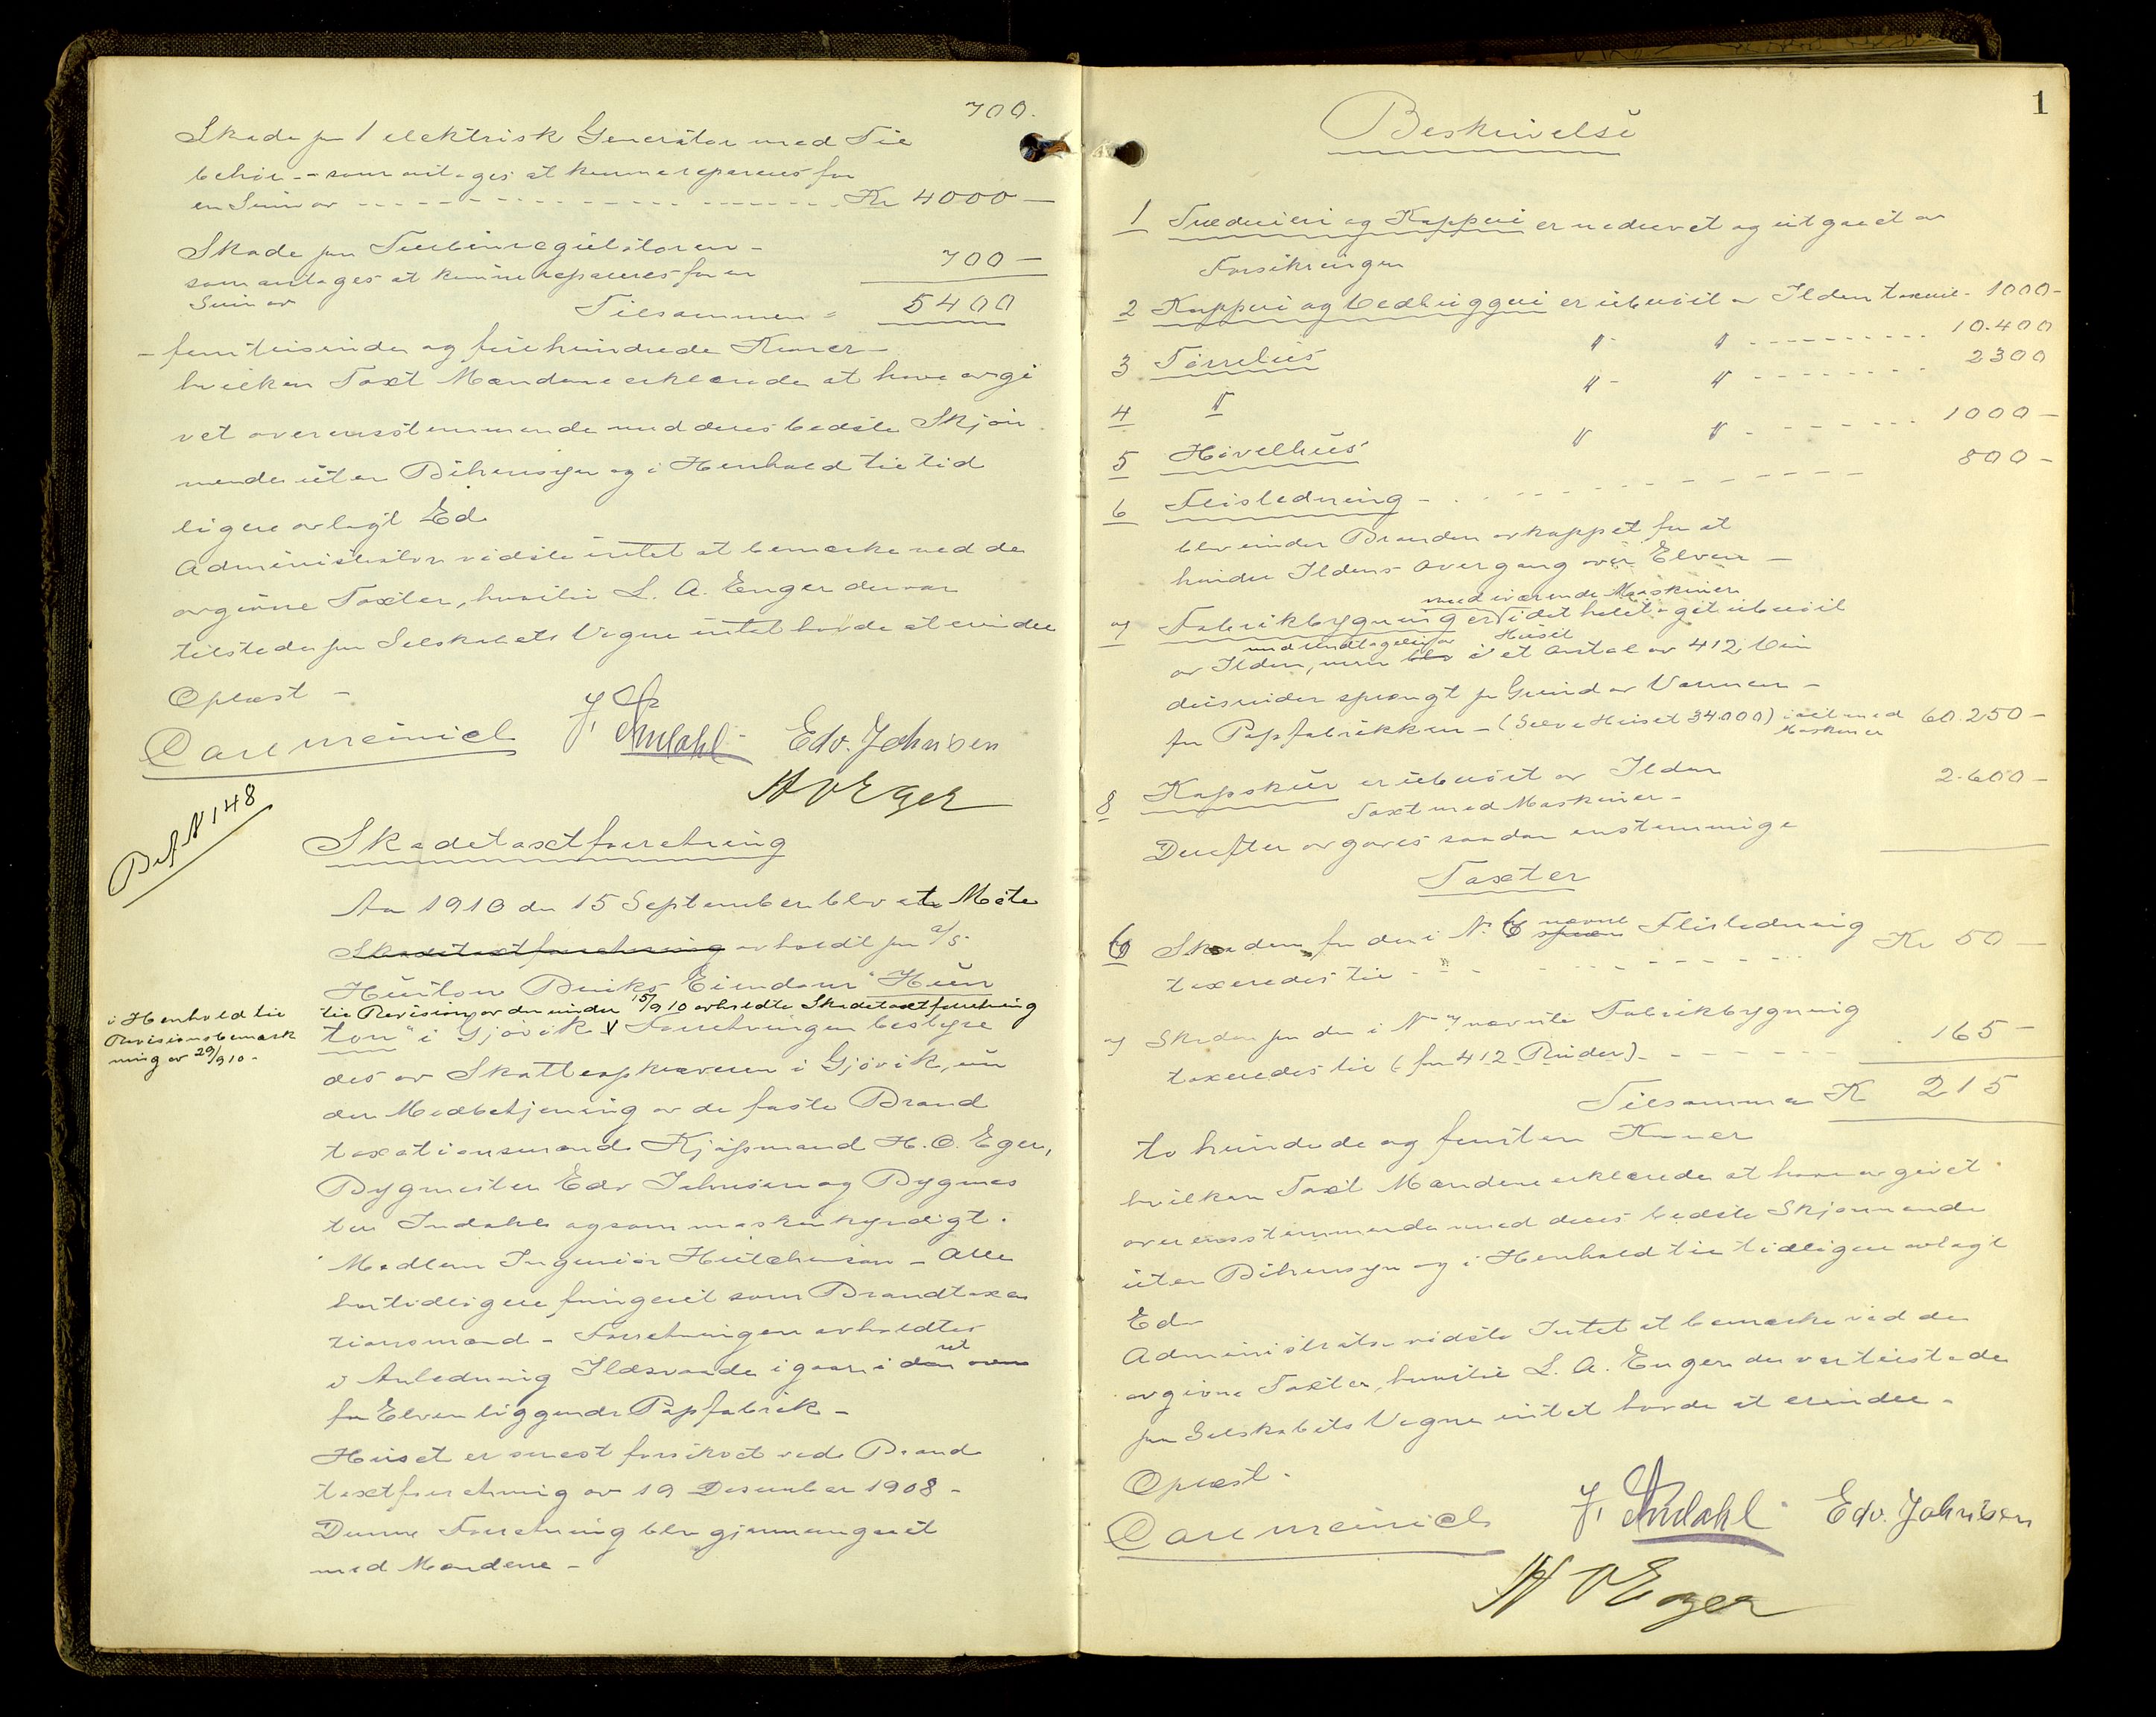 700.
Skade paa 1 elektrisk Generator med Til
behør - som antages at kunne repareres for
en Sum av Kr 4000 —
Skade paa Turbinregulatoren -
som antages at kunne repareres for en 700 —
Sum av Tilsammen = 5400
- femtusinde og firehundrede Kroner -
hvilken Taxt Mændene erklærede at have avgi
vet overensstemmende med deres bedste Skjøn
nende uten Bihensyn og i Henhold til tid
ligere avlagt Ed.
Administrator vidste intet at bemerke ved de
avgivne Taxter, hvortil L. A. Enger der var
tilstede paa Selskabets Vegne intet havde at erindre
Oplæst -
Carl Meinich J. Andahl Edv. Johnsen
H O Eger
Bef N 148
Skadetaxtforretning
Aar 1910 den 15 September blev et Møte
Skadetaxtforretning avholdt paa a/s
Hunton Bruks Eiendom "Hun
til Revision av den under 15/9 10 avholdte Skadetaxtforretning
ton" i Gjøvik V Forretningen bestyre
i Henhold til
Revisionsbemerk
ning av 29/9 10 -
des av Skatteopkræveren i Gjøvik, un
der Medbetjening av de faste Brand
taxationsmænd Kjøpmand H. O. Eger,
Bygmester Edv Johnsen og Bygmes
ter Indahl og som maskinkyndigt
Medlem Ingeniør Hutchinson - Alle
har tidligere fungeret som Brandtaxa
tionsmænd - Forretningen avholdtes
i Anledning Ildsvaade igaar i den ut oven
for Elven liggende Papfabrik -
Huset er senest forsikret ved Brand
taxtforretning av 19 Desember 1908 -
Denne Forretning blev gjennemgaaet
med Mændene -
1
Beskrivelse
1 Træsliperi og Kapperi er nedrevet og utgaaet av
Forsikringen
2 Kapperi og Vedbryggeri er uberørt av Ilden taxeret - 1000 -
3 Tørrehus " " 10.400
4 " " " 2300
5 Høvelhus " " 1000 —
6 Flisledning - 800 -
blev under Branden avkappet for at
hindre Ildens Overgang over Elven -
med iværende Maskiner
7 Fabrikbygning er V i det hele tat uberørt
med Undtagelse av Huset
av Ilden, men blev i et Antal av 412 Vin
duesruder sprængt paa Grund av Varmen -
for Papfabrikken - (Selve Huset 34.000) i alt med Maskiner 60.250 —
8 Kapskur er uberørt av Ilden 2.600 —
Taxt med Maskiner -
Derefter avgaves saadan enstemmige
Taxter
6 Skaden paa den i N. 6 nævnte Flisledning
taxeredes til - Kr 50 —
7 Skaden paa den i N 7 nævnte Fabrikbygning
taxeredes til (for 412 Ruder) - 165 —
Tilsammen Kr 215
to hundrede og femten Kroner
hvilken Taxt Mændene erklærede at have avgivet
overensstemmende med deres bedste Skjønnende
uten Bihensyn og i Henhold til tidligere avlagt
Ed -
Administrator vidste Intet at bemerke ved de
avgivne Taxter, hvortil L. A. Enger der var tilstede
paa Selskabets Vegne intet havde at erindre -
Oplæst -
Carl Meinich J. Andahl Edv. Johnsen
H O Eger